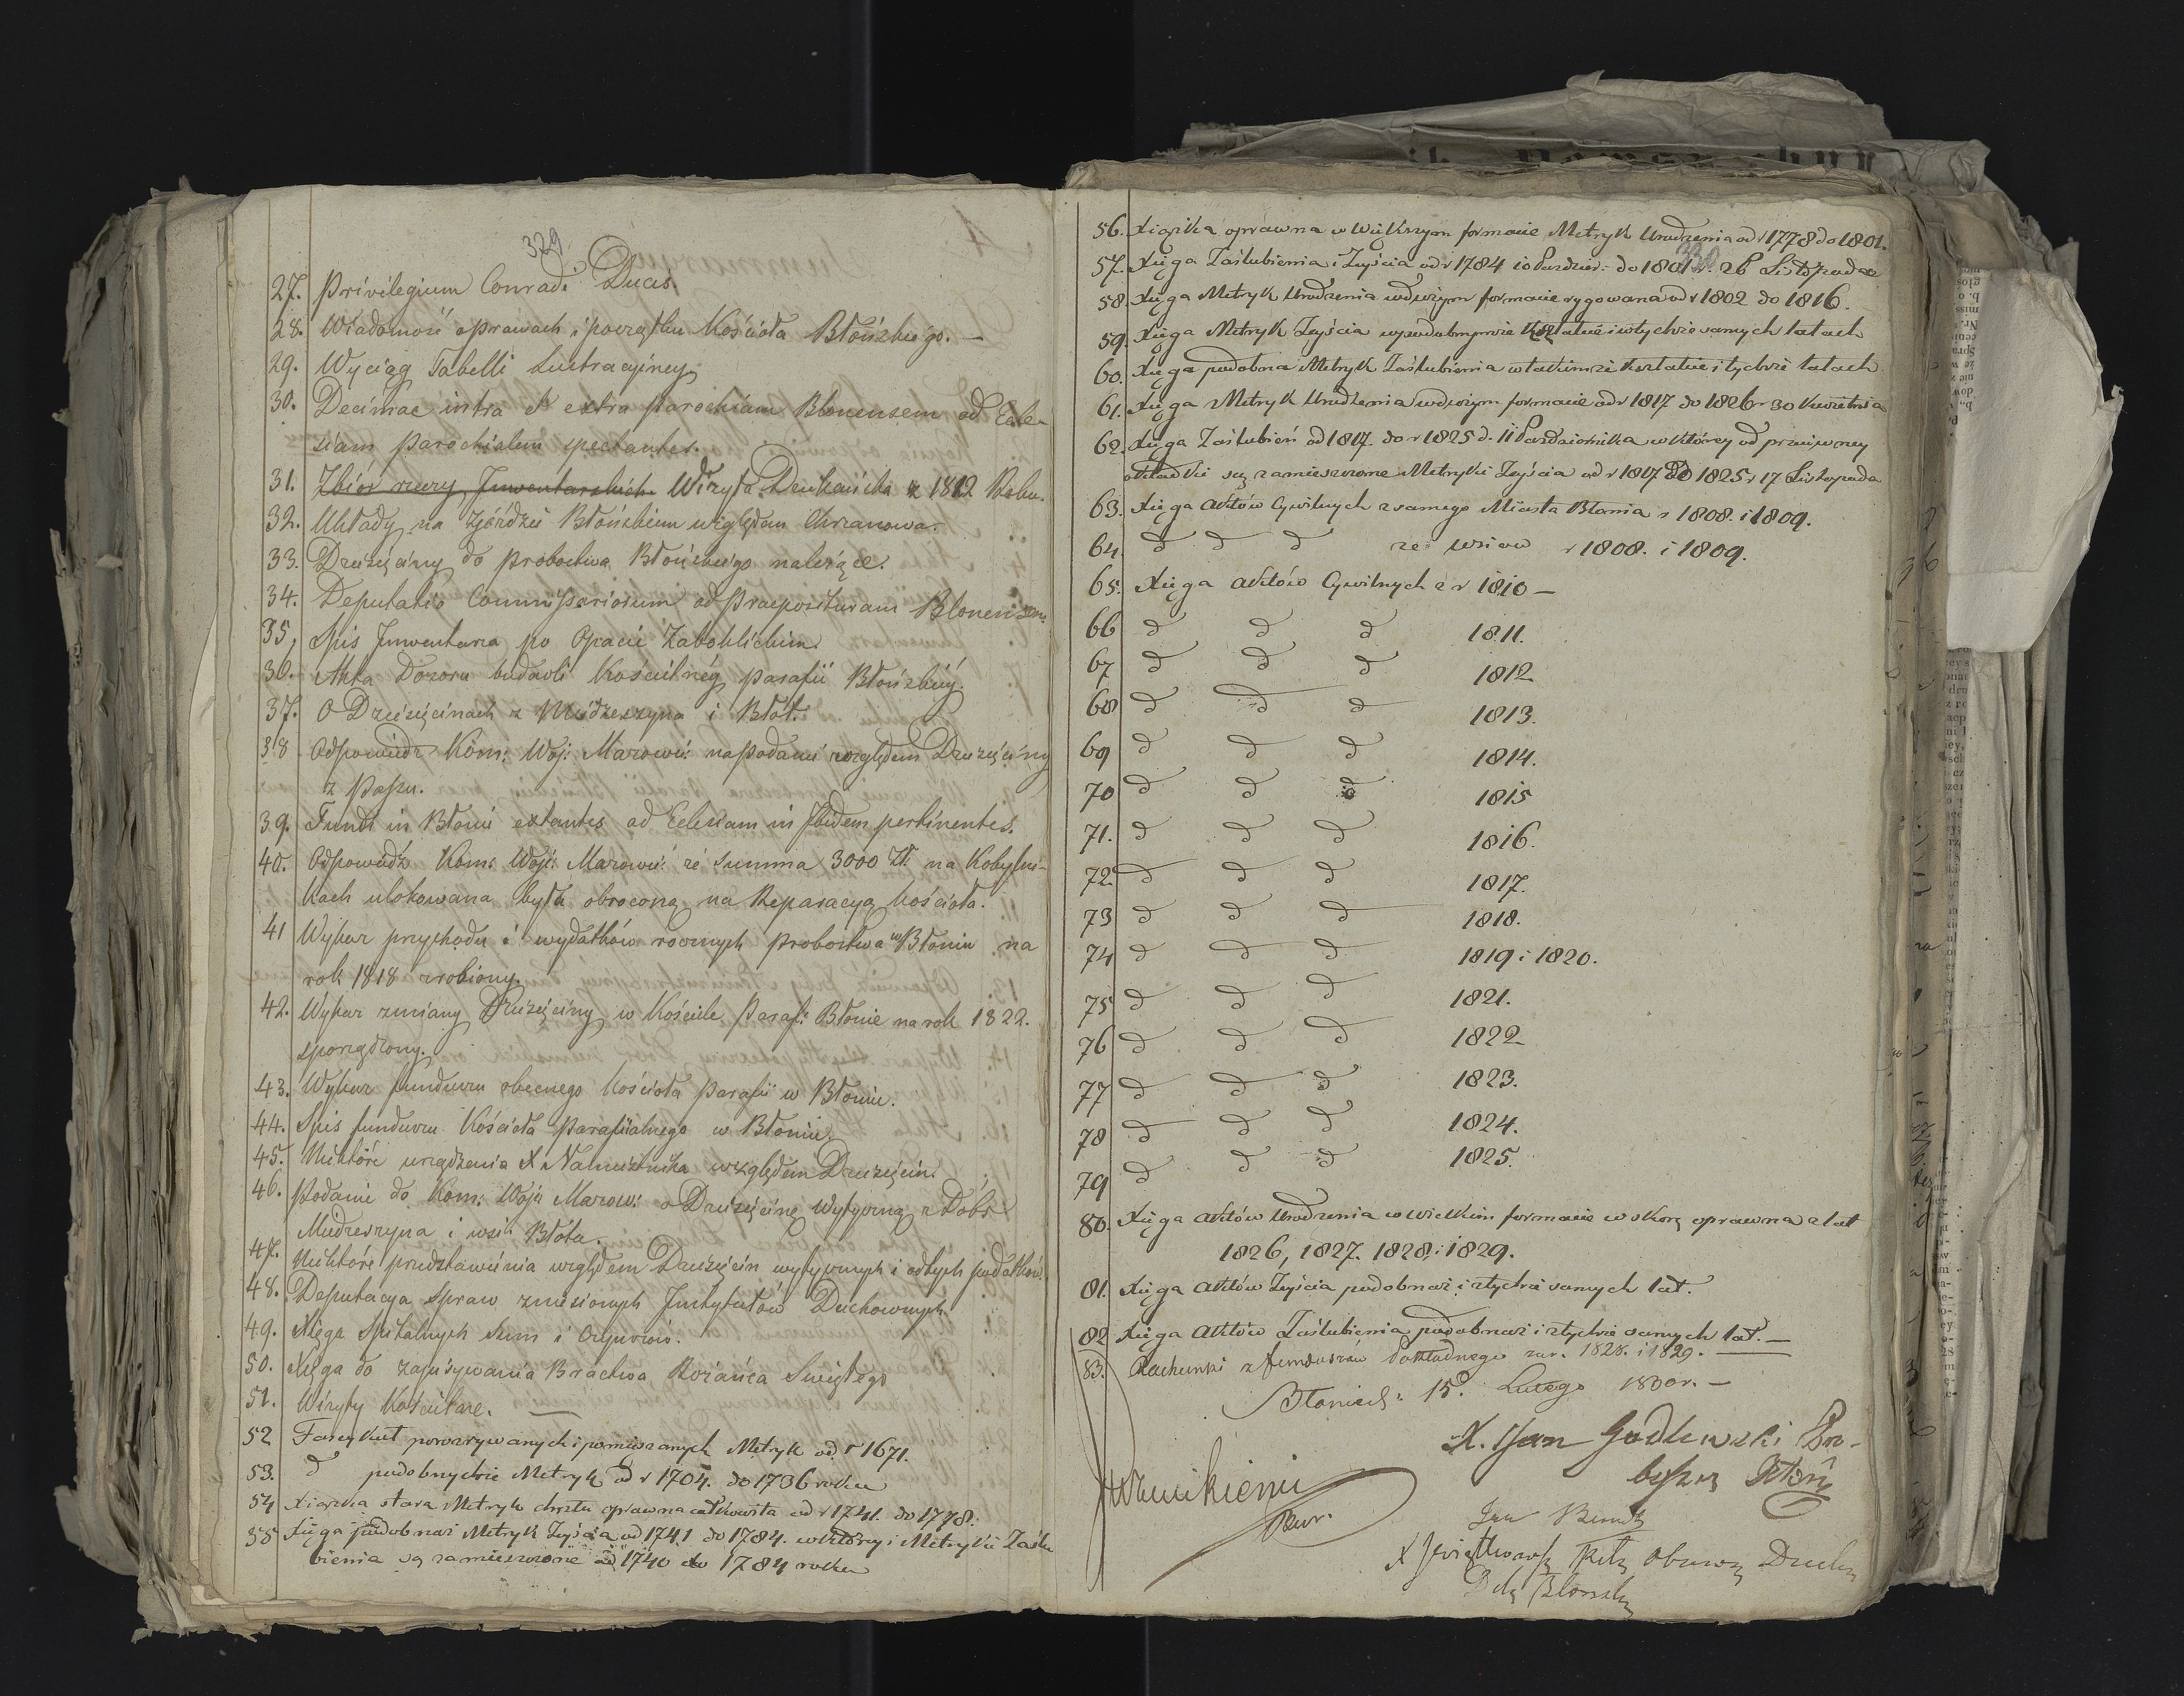 329
27. Privilegium Conradi Ducis.
28. Wiadomość oprawach i początku Kościoła Błońskiego. —
29. Wyciąg Tabelli Lustracyiney
30. Decimae intra et extra parochiam Blonensem ad Eccle-
siam parochialem spectantes.
31. Zbiór rzeczy Inwentarskich Wizyta Dziekańska z 1812 Roku.
32. Układy na Zjeździe Błońskiem względem Chrzanowa.
33. Dziesięciny do probostwa Błońskiego należące.
34. Deputatio Commissariorum ad Praeposituram Blonensem
35. Spis Inwentarza po Opacie Zaboklickim.
36. Akta Dozoru budowli Kościelnéy parafii Błońskiéy.
37. O Dziesięcinach z Miedzeszyna i Błót.
38 Odpowiedź Kom: Woj: Mazowie: na podanie względem Dziesięciny
z Passu.
39. Fundi in Błonie extantes ad Eclesiam in Ibidem pertinentes.
40. Odpowiedź Kom: Woje: Mazowie: że summa 3000 Zł. na Kobylni-
kach ulokowana była obrócona na Reparacyą Kościoła.
41 Wykaz przychodu i wydatków rocznych probostwa w Błoniu na
rok 1818 zrobiony.
42. Wykaz zmiany Dziesięciny w Kościele Paraf: Błonie na rok 1822.
sporządzony.
43. Wykaz funduszu obecnego Kościoła Parafii w Błoniu.
44. Spis funduszu Kościoła Parafialnego w Błoniu.
45. Niektóre urządzenia X Namiestnika względem Dziesięcin.
46. Podanie do Kom: Woje Mazow: o Dziesięcinę wytyczną z Dóbr
Miedzeszyna i wsi Błota.
47. Niektóre przedstawienia względem Dziesięcin wytycznych i od tych podatków.
48. Deputacya Spraw zniesionych Instytutów Duchownych
49. Xięga Szpitalnych Sum i Czynszów.
50. Xięga do zapisywania Bractwa Różańca Świętego
51. Wizyty Kościelne. —
52 Fascykuł porozrywanych i pomieszanych Metryk od r 1671.
53. d podobnychże Metryk od r 1704. do 1736 roku
54 Xiązka stara Metryk chrztu oprawna całkowita od r 1741. do 1778.
55 Xięga podobnaż Metryk Zeyścia od 1741 do 1784. w którey i Metryki Zaślu
bienia są zamieszczone od 1740 do 1784 roku
330
56. Xiązka oprawna w większym formacie Metryk Urodzenia od r 1778 do 1801.
57. Xięga Zaślubienia i Zeyścia od r 1784 10 Pazdzier: do 1801 r. 26 Listopada
58. Xięga Metryk Urodzenia w dużym formacie rygowana od r 1802 do 1816.
59. Xięga Metryk Zeyścia w podobnymże kształcie i w tychże samych latach
60. Xięga podobna Metryk Zaślubienia w takimże kształcie i tychże latach
61. Xięga Metryk Urodzenia w dużym formacie od r 1817 do 1826 r 30 Kwietnia
62. Xięga Zaślubień od 1817. do r 1825 d. 11 Pazdziernika w którey od przeciwney
okładki są zamieszczone Metryki Zeyścia od r 1817 Do 1825 r 17 Listopada
63. Xięga Aktów Cywilnych z samego Miasta Błonia r 1808. i 1809.
64. d d d ze wsiów r 1808. i 1809.
65. Xięga Aktów Cywilnych z r 1810 —
66 d d d 1811.
67 d d d 1812
68 d d d 1813.
69 d d d 1814.
70 d d d 1815
71. d d d 1816.
72. d d d 1817.
73 d d d 1818.
74 d d d 1819 i 1820.
75 d d d 1821.
76 d d d 1822
77 d d d 1823.
78 d d d 1824.
79 d d d 1825.
80. Xięga Aktów Urodzenia w wielkim formacie w skorę oprawna z lat
1826, 1827. 1828, i 1829.
81. Xięga Aktów Zeyścia podobnaż i z tychże samych lat.
82 Xięga Aktów Zaślubienia podobnaż i z tychże samych lat. —
83. Rachunki z funduszów Pokładnego z r. 1828. i 1829. —
Błonie d: 15o. Lutego 1830 r. —
X. Jan Godlewski Pro-
boszcz Błoń
Bur.
Jan